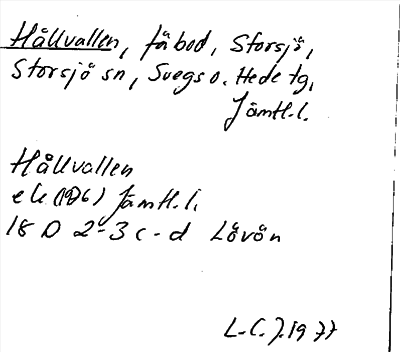 Hållvallen, fäbod, Storsjö,
Storsjö sn, Svegs o. Hede tg,
Jämtl.l.
Hållvallen
ek (1976) Jämtl.l.
18 D 2-3 c-d Lövön
L.C.J. 1977